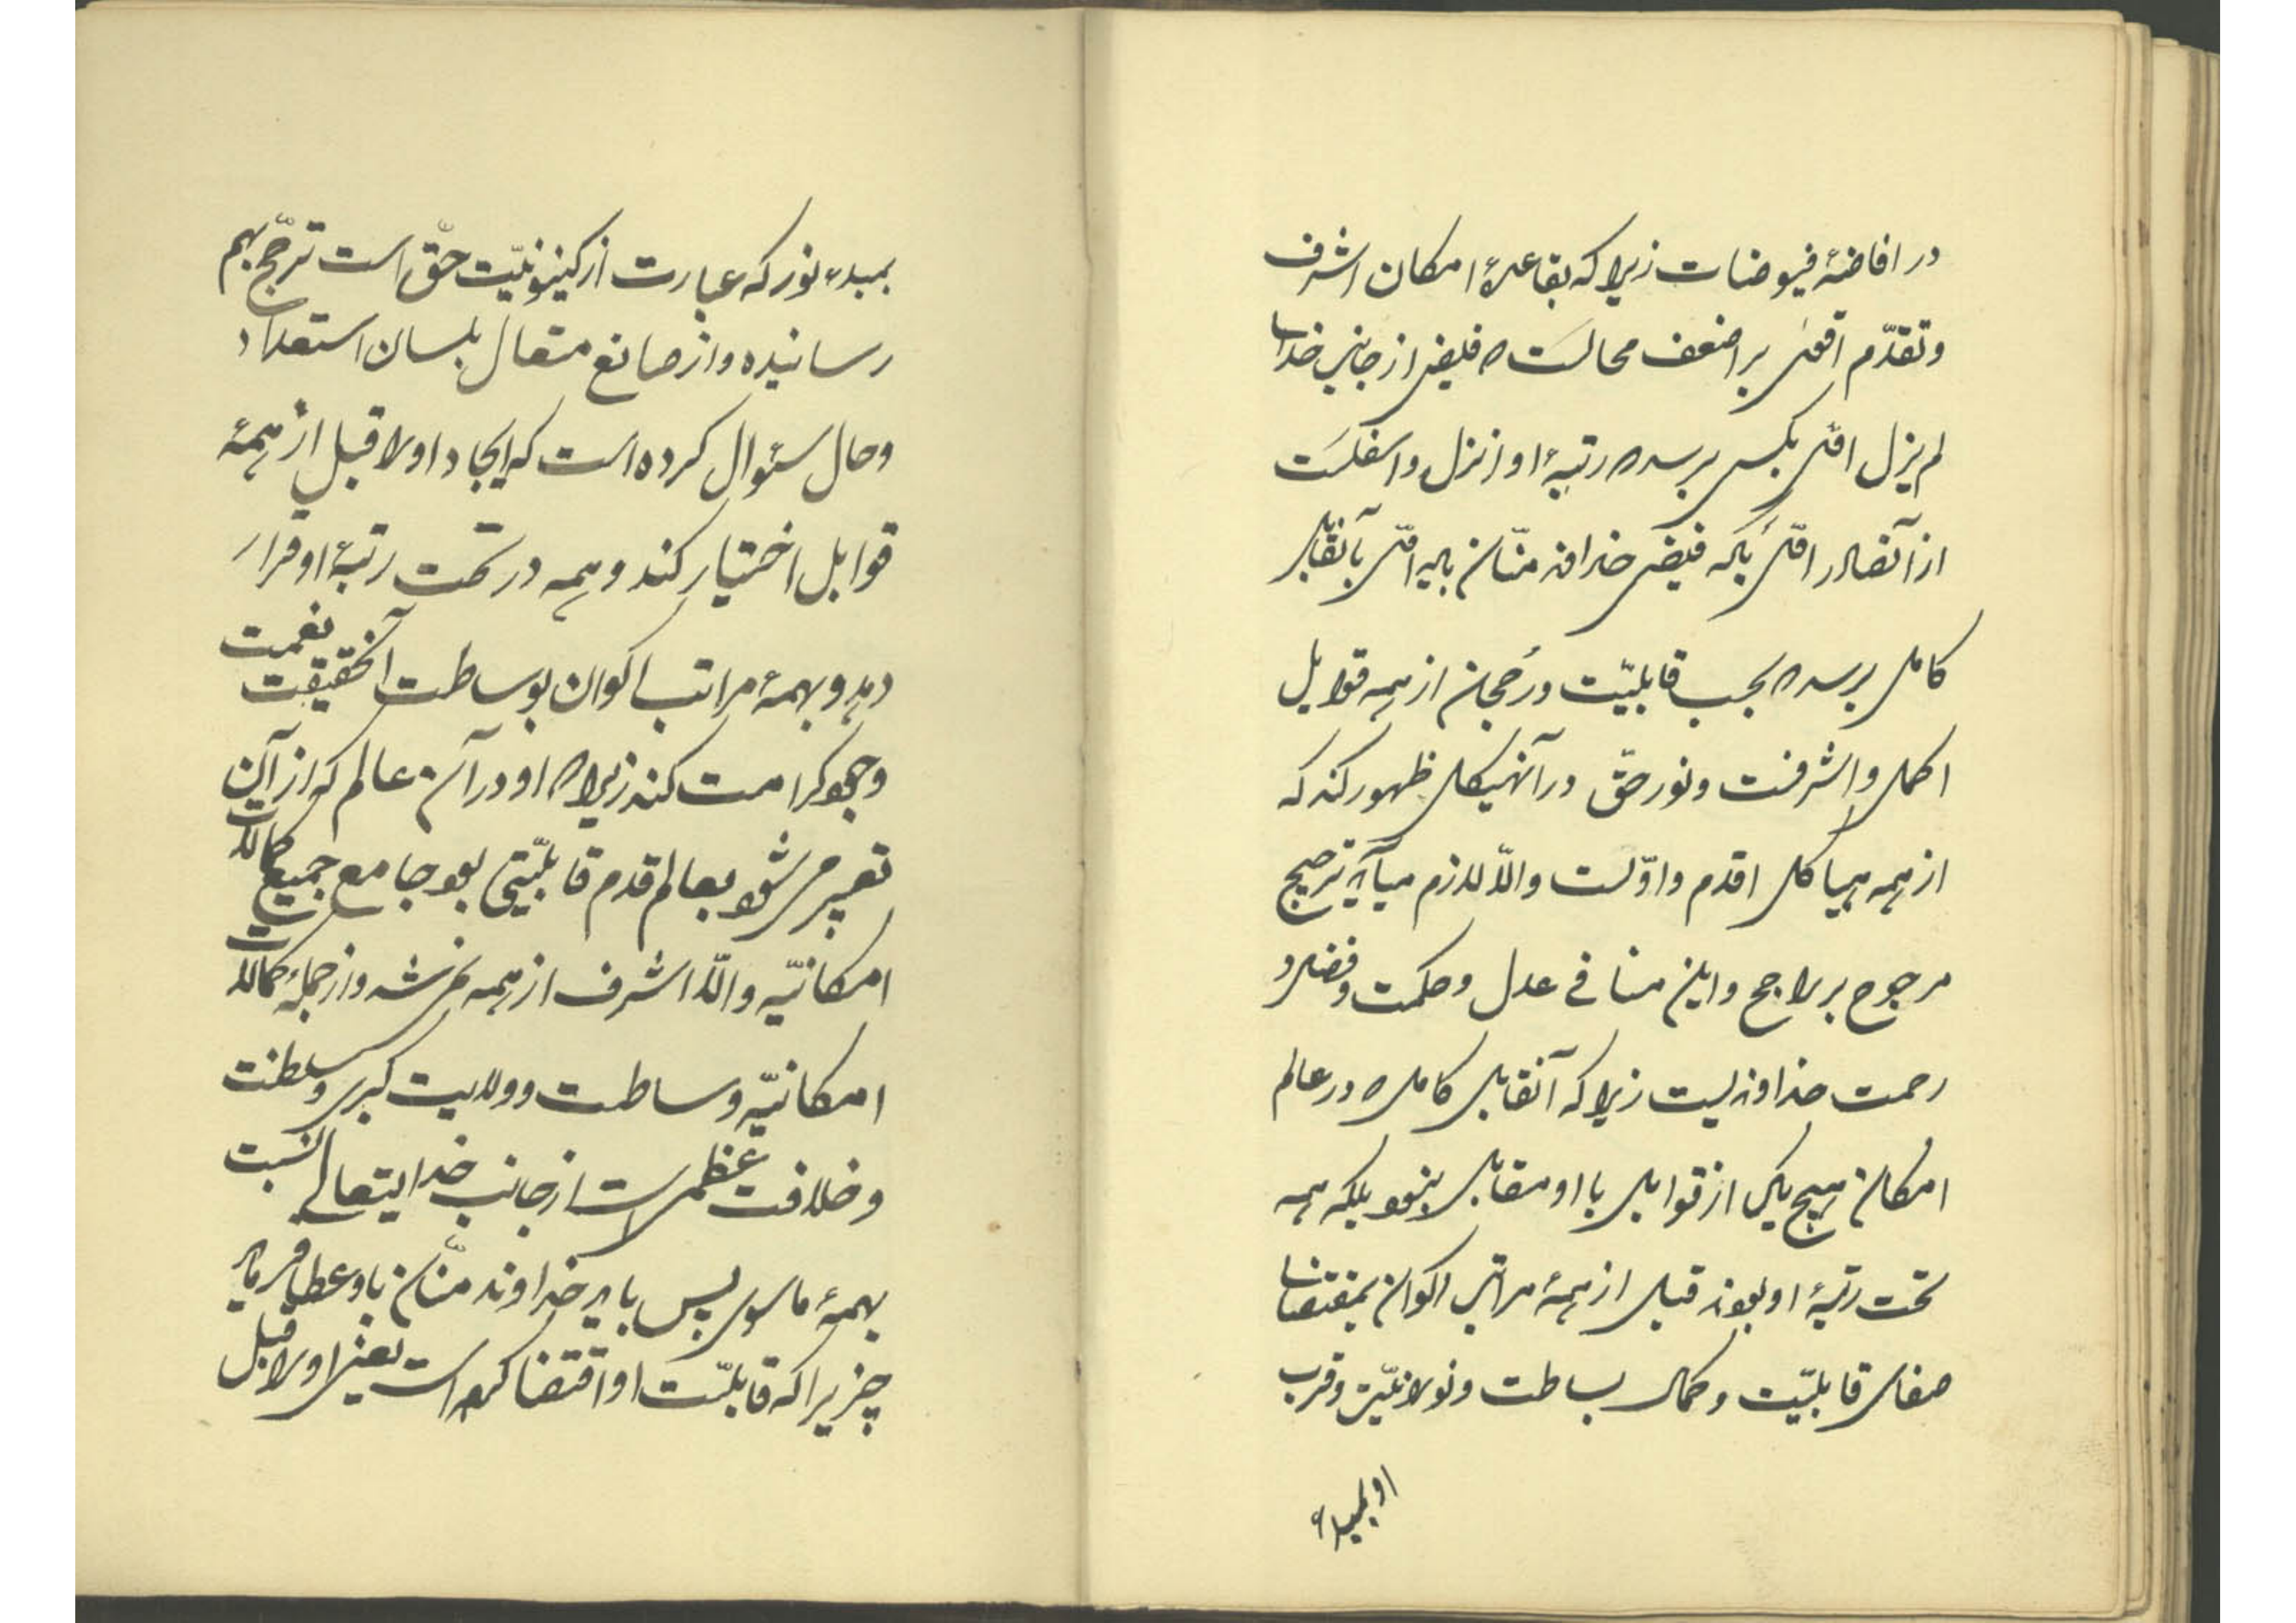 در افاضهٔ فیوضات زیرا که بقاعدهٔ امکان اشرف
و تقدّم اقوی بر اضعف محالست که فیض از جانب خدای
لم یزل اوّل بکسی برسد که رتبهٔ او انزل و اسفلست
از آنصادر اوّل بلکه فیض خداوند منّان باید اوّل بآنقابل
کامل برسد که بحسب قابلیّت و رُجحان از همه قوابل
اکمل و اشرفست و نور حقّ در آنهیکل ظهور کند که
از همه هیاکل اقدم و اوّلست والّا لازم میآید ترجیح
مرجوح بر راجح و این منافی عدل و حکمت و فضل و
رحمت خداوندیست زیرا که آنقابل کامل که در عالم
امکان هیچ یکی از قوابل با او مقابل نبود بلکه همه
تحت رتبهٔ او بودند قبل از همهٔ مراتب اکوان بمقتضای
صفای قابلیّت و کمال بساطت و نورانیّت و قرب
او بمبدء
بمبدء نور که عبارت از کینونیّت حقّ است ترجّح بهم
رسانیده و از صانع متعال بلسان استعداد
و حال سئوال کرده است که ایجاد او را قبل از همهٔ
قوابل اختیار کند و همه در تحت رتبهٔ او قرار
دهد و بهمهٔ مراتب اکوان بوساطت آنحقیقت نعمت
وجود کرامت کند زیرا که او در آن عالم که از آن
تعبیر میشود بعالم قدم قابلیّتی بود جامع جمیع کمالات
امکانیّه والّا اشرف از همه نمیشد و از جملهٔ کمالات
امکانیّه وساطت و ولایت کبری و سلطنت
و خلافت عظمی است از جانب خدایتعالی نسبت
بهمهٔ ماسوی پس باید خداوند منّان باو عطا فرماید
چیزیرا که قابلیّت او اقتضا کرده است یعنی او را قبل